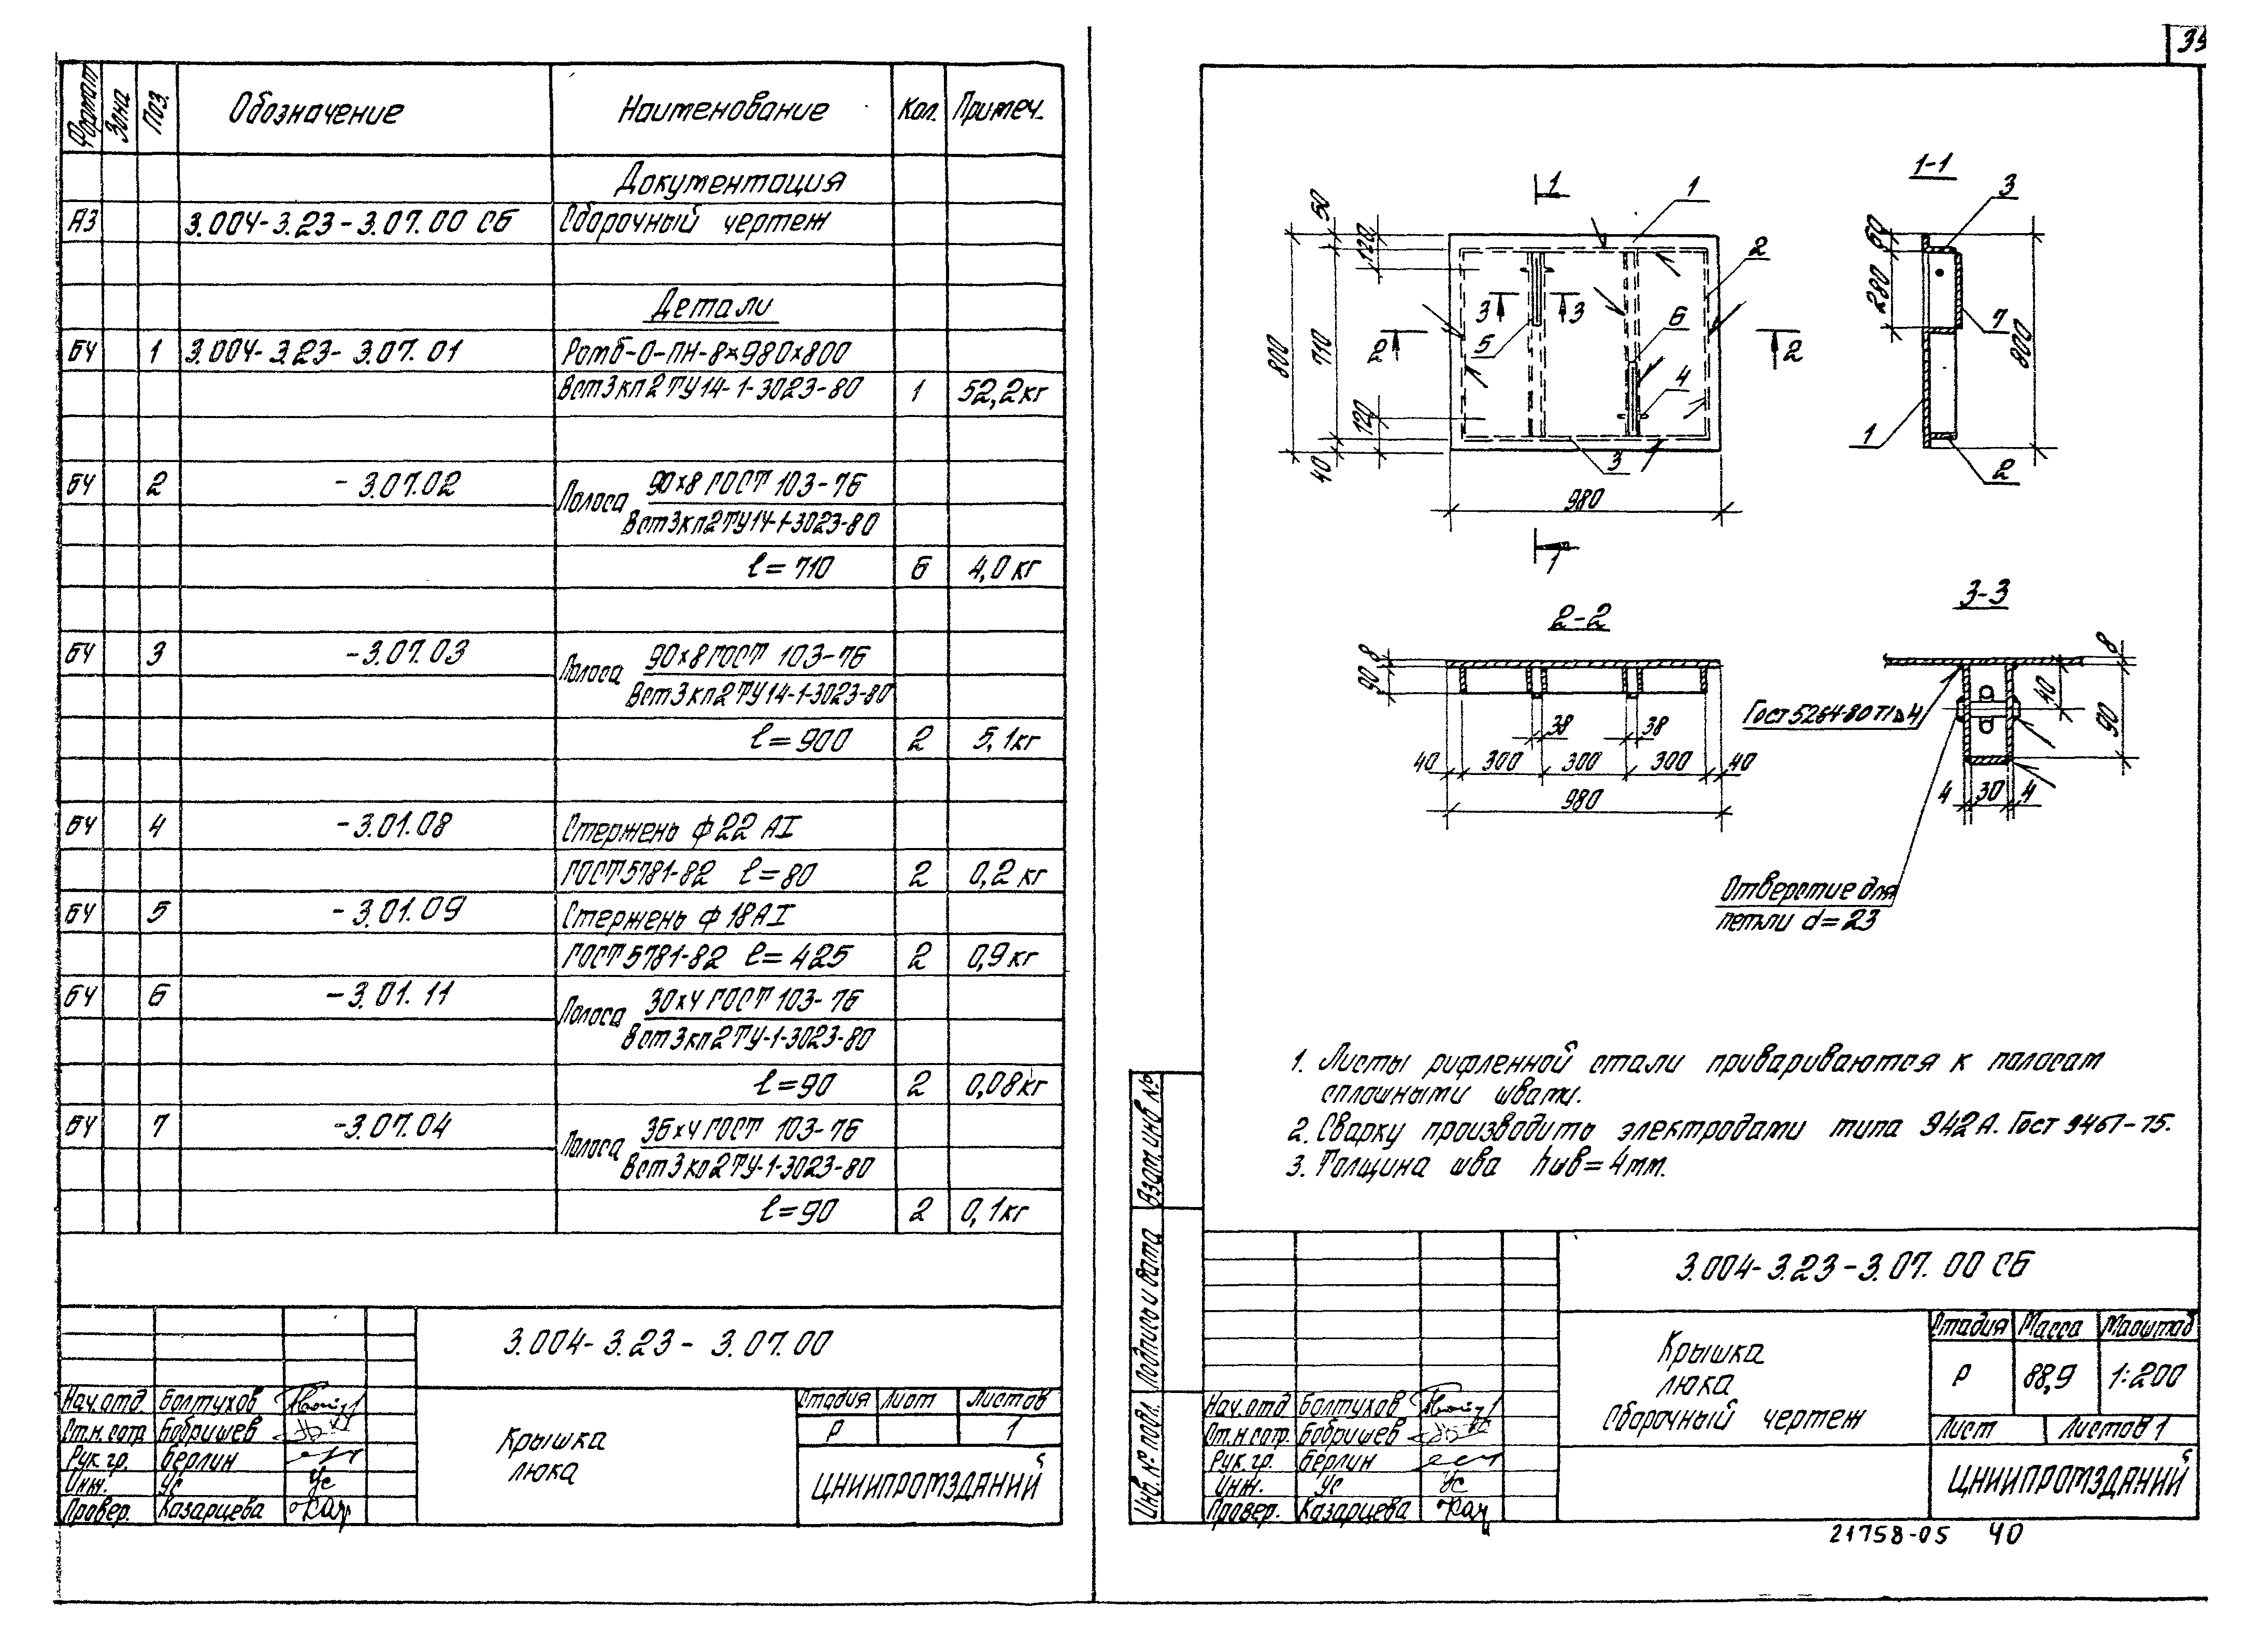 Формат Зона Поз. Обозначение Наименование Кол. Примеч.
Документация
А3 3.004-3.23-3.07.00 СБ Сборочный чертеж
Детали
БЧ 1 3.004-3.23-3.07.01 Ромб-О-ПН-8×980×800
Вст3кп2 ТУ14-1-3023-80 1 52,2кг
БЧ 2 -3.07.02 Полоса 90×8 ГОСТ 103-76
Вст3кп2ТУ14-1-3023-80
ℓ=710 6 4,0кг
БЧ 3 -3.07.03 Полоса 90×8 ГОСТ 103-76
Вст3кп2ТУ14-1-3023-80
ℓ=900 2 5,1кг
БЧ 4 -3.01.08 Стержень ф22 АI
ГОСТ5781-82 ℓ=80 2 0,2кг
БЧ 5 -3.01.09 Стержень ф18АI
ГОСТ5781-82 ℓ=425 2 0,9кг
БЧ 6 -3.01.11 Полоса 30×4 ГОСТ 103-76
Вст3кп2ТУ-1-3023-80
ℓ=90 2 0,08кг
БЧ 7 -3.07.04 Полоса 36×4 ГОСТ 103-76
Вст3кп2ТУ-1-3023-80
ℓ=90 2 0,1кг
3.004-3.23-3.07.00
Нач.отд Болтухов
Ст.н.сотр Бобришев
Рук.гр. Берлин
Инж. Ус Ус
Провер. Казарцева
Крышка
люка
Стадия Лист Листов
Р 1
ЦНИИПРОМЗДАНИЙ
1 1
50 120
800 710
120 40
3 3
5 6
2 2
4 3
2
980
1
1-1
3
50 280
7
800
1 2
2-2
8
90
38 38
40 300 300 300 40
980
3-3
8
40
90
Гост5264-80 Т1 4
4 30 4
Отверстие для
петли d=23
1. Листы рифленной стали привариваются к полосам
сплошными швами.
2. Сварку производить электродами типа Э42А. Гост 9467-75.
3. Толщина шва hшв=4мм.
Взам.инв.№
Подпись и дата
Инв.№подл.
3.004-3.23-3.07.00 СБ
Нач.отд Болтухов
Ст.н.сотр. Бобришев
Рук.гр. Берлин
Инж. Ус Ус
Провер. Казарцева
Крышка
люка
Сборочный чертеж
Стадия Масса Масштаб
Р 88,9 1:200
Лист Листов 1
ЦНИИПРОМЗДАНИЙ
21758-05 40